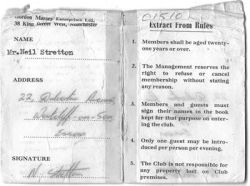 Gordon Marsay Enterprises Ltd.
38 King Street West, Manchester
NAME
Mr.Neil Stretton
ADDRESS
22,
Westcliff-on-Sea
Essex
SIGNATURE
N. Stretton
Extract From Rules
1. Members shall be aged twenty-one years or over.
2. The Management reserves the
right to refuse or cancel
membership without stating
any reason.
3. Members and guests must
sign their names in the book
kept for that purpose on entering
the club.
4. Only one guest may be introduced
per person per evening.
5. The Club is not responsible
for any property lost on Club
premises.